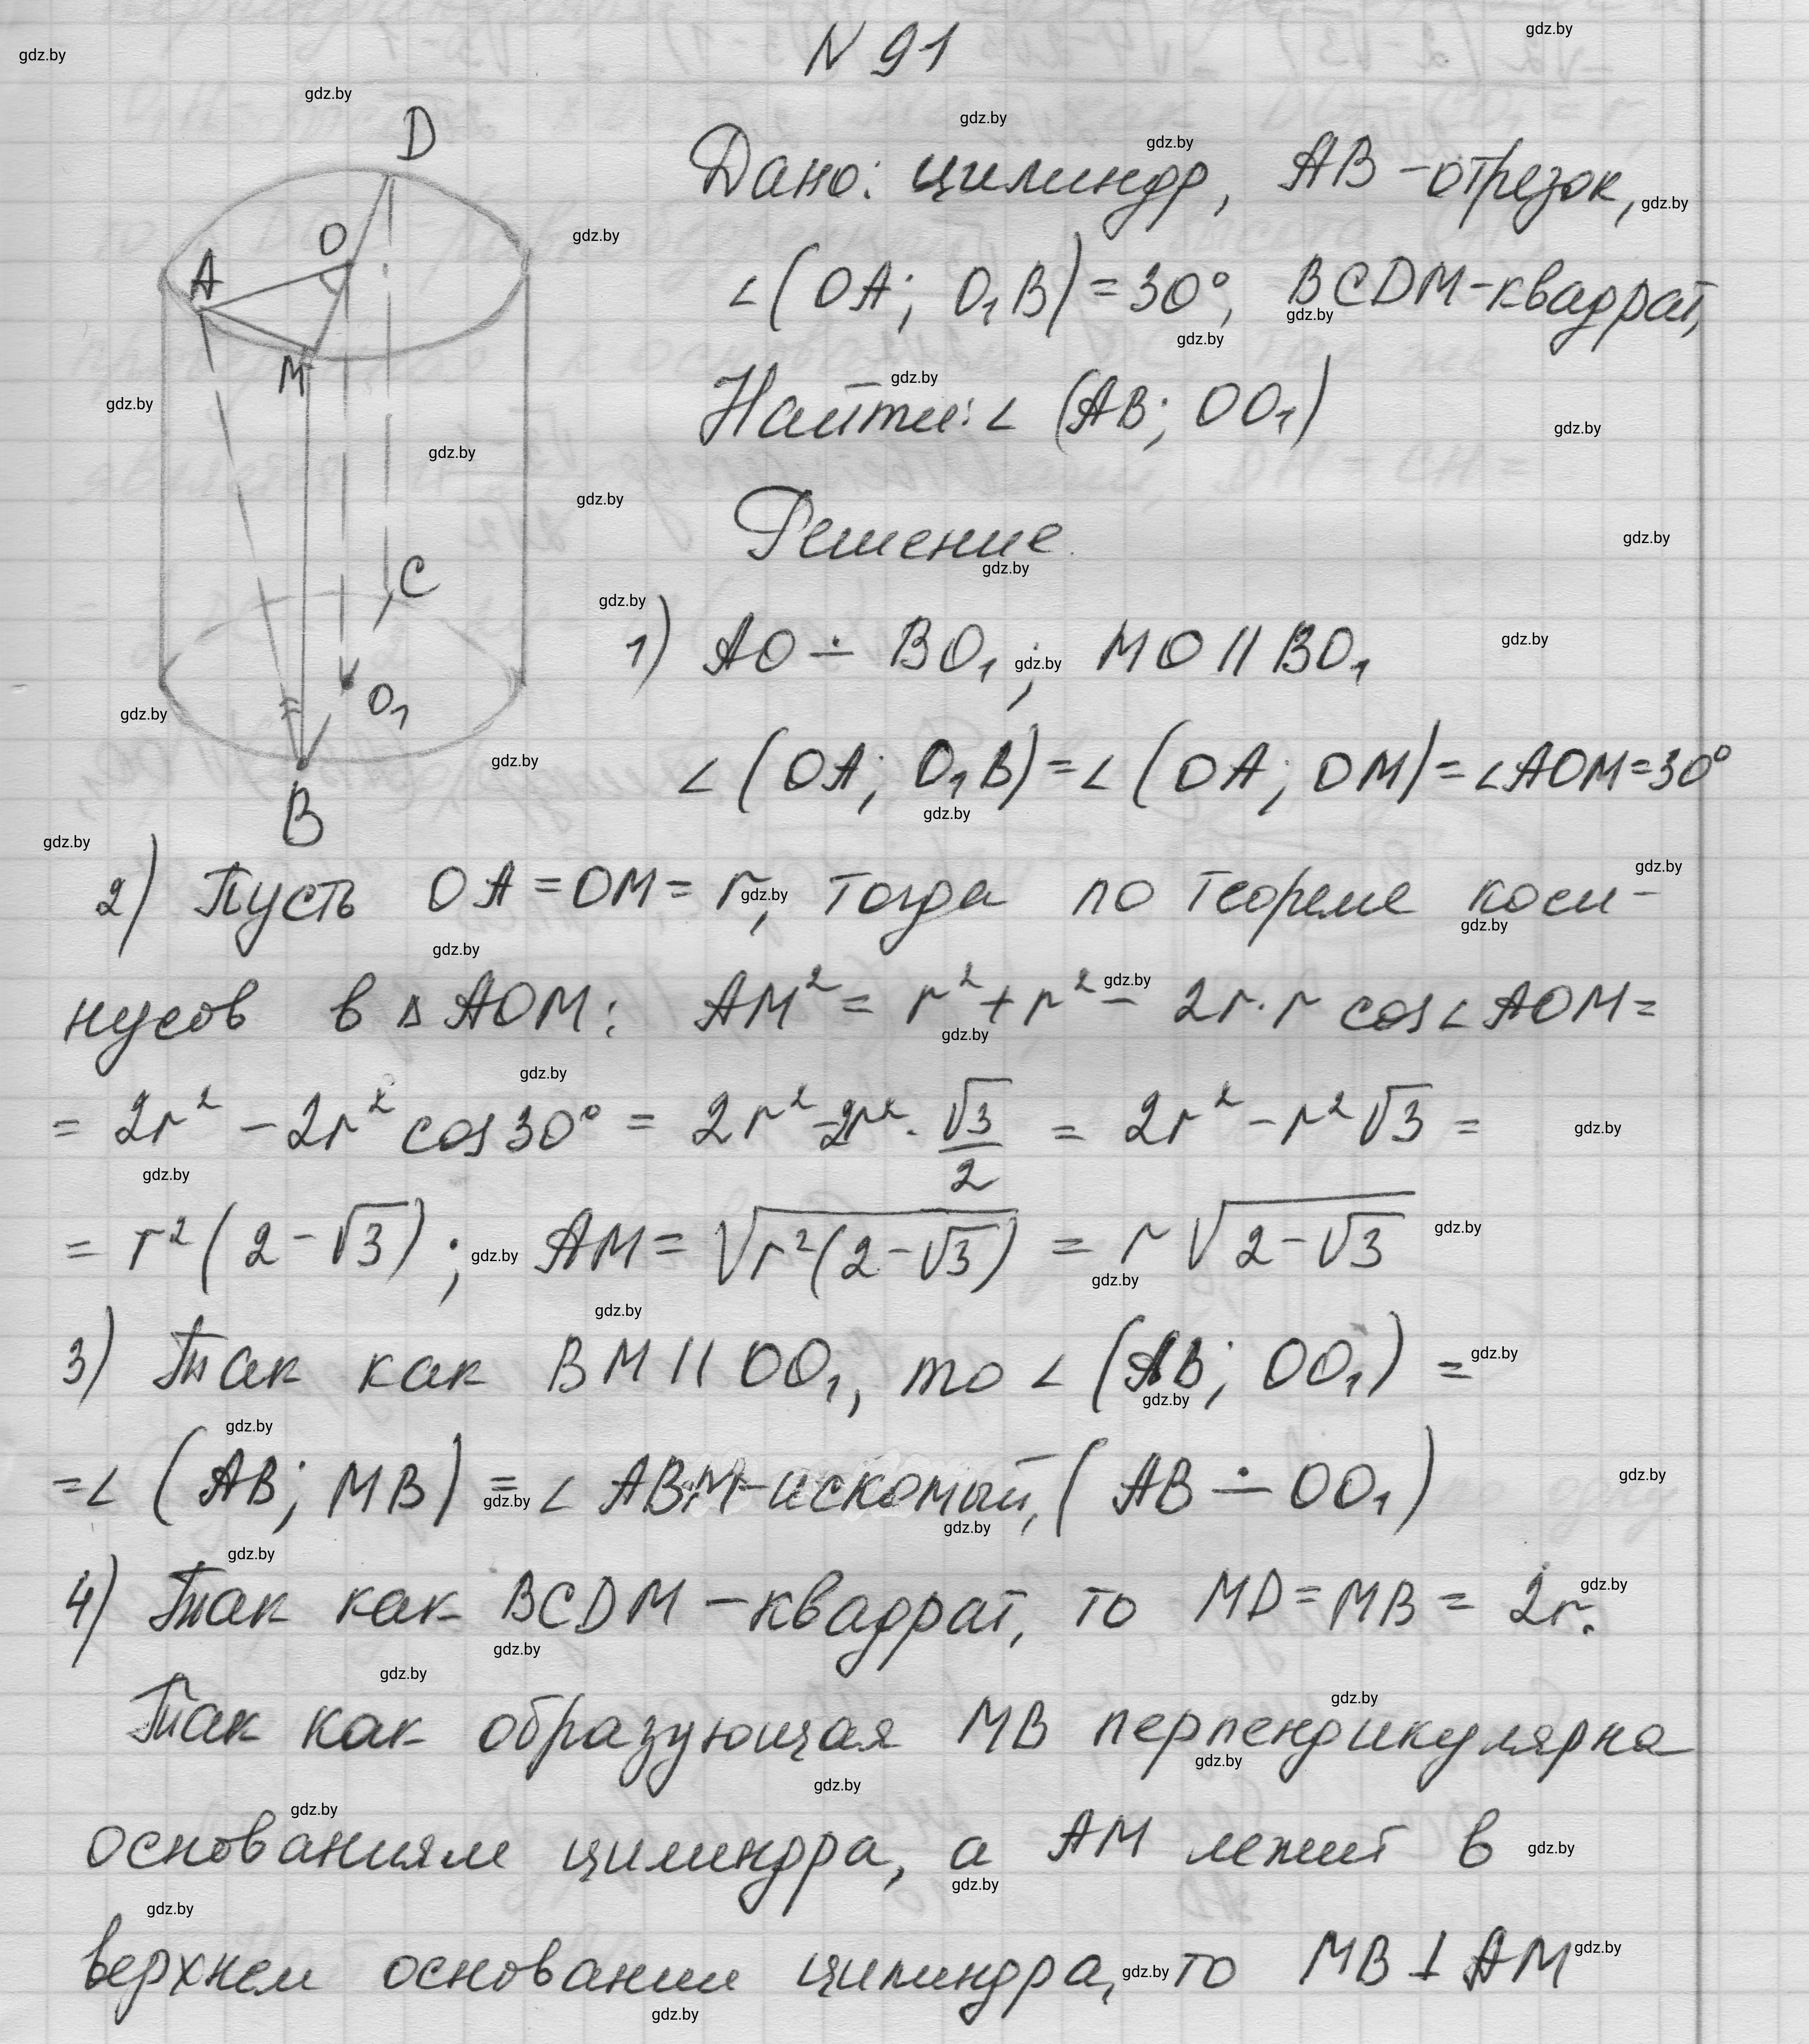 N 91
Дано: цилиндр, AB - отрезок,
∠(OA; O₁B) = 30°, BCDM - квадрат,
Найти: ∠ (AB; OO₁)
Решение.
1) AO ∸ BO₁; MO || BO₁
∠(OA; O₁B) = ∠(OA; OM) = ∠AOM = 30°
D
O
A
M
C
O₁
B
2) Пусть OA = OM = r, тогда по теореме коси-
нусов в △AOM: AM² = r² + r² - 2r·r cos∠AOM =
= 2r² - 2r² cos30° = 2r² - 2r² · √3/2 = 2r² - r²√3 =
= r²(2-√3); AM = √(r²(2-√3)) = r√(2-√3)
3) Так как BM || OO₁, то ∠(AB; OO₁) =
= ∠(AB; MB) = ∠ABM - искомый, (AB ∸ OO₁)
4) Так как BCDM - квадрат, то MD = MB = 2r.
Так как образующая MB перпендикулярна
основаниям цилиндра, а AM лежит в
верхнем основании цилиндра, то MB ⊥ AM
gdz.by